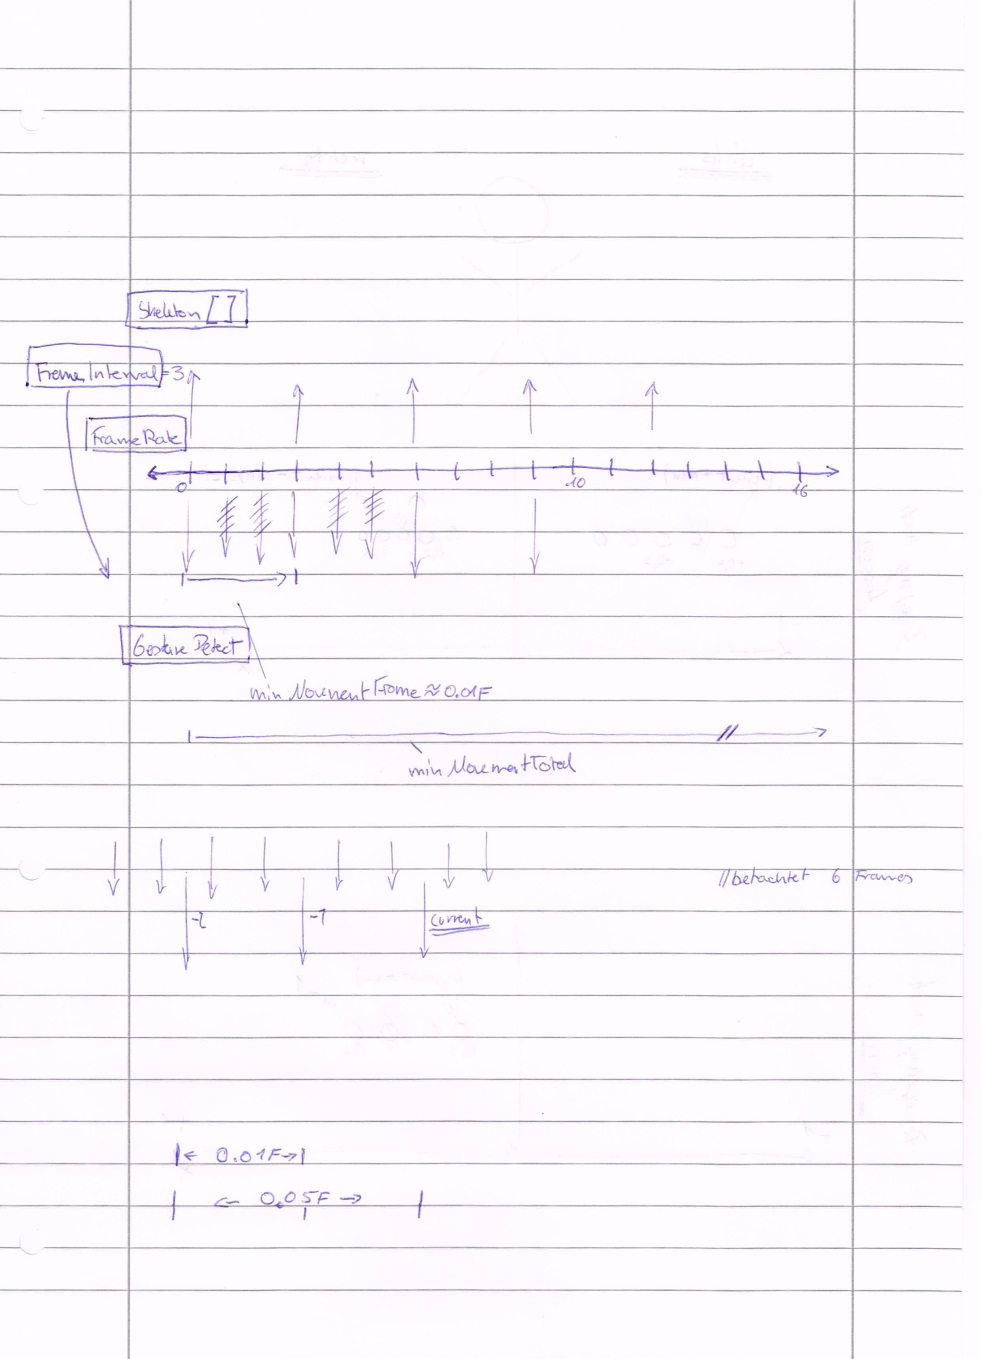 Skeleton []
FrameInterval=3
FrameRate
0 10 16
Gesture Detect
min Movement Frame ≈ 0.01F
min MovementTotal
//betrachtet 6 Frames
-2 -1 current
0.01F
0.05F